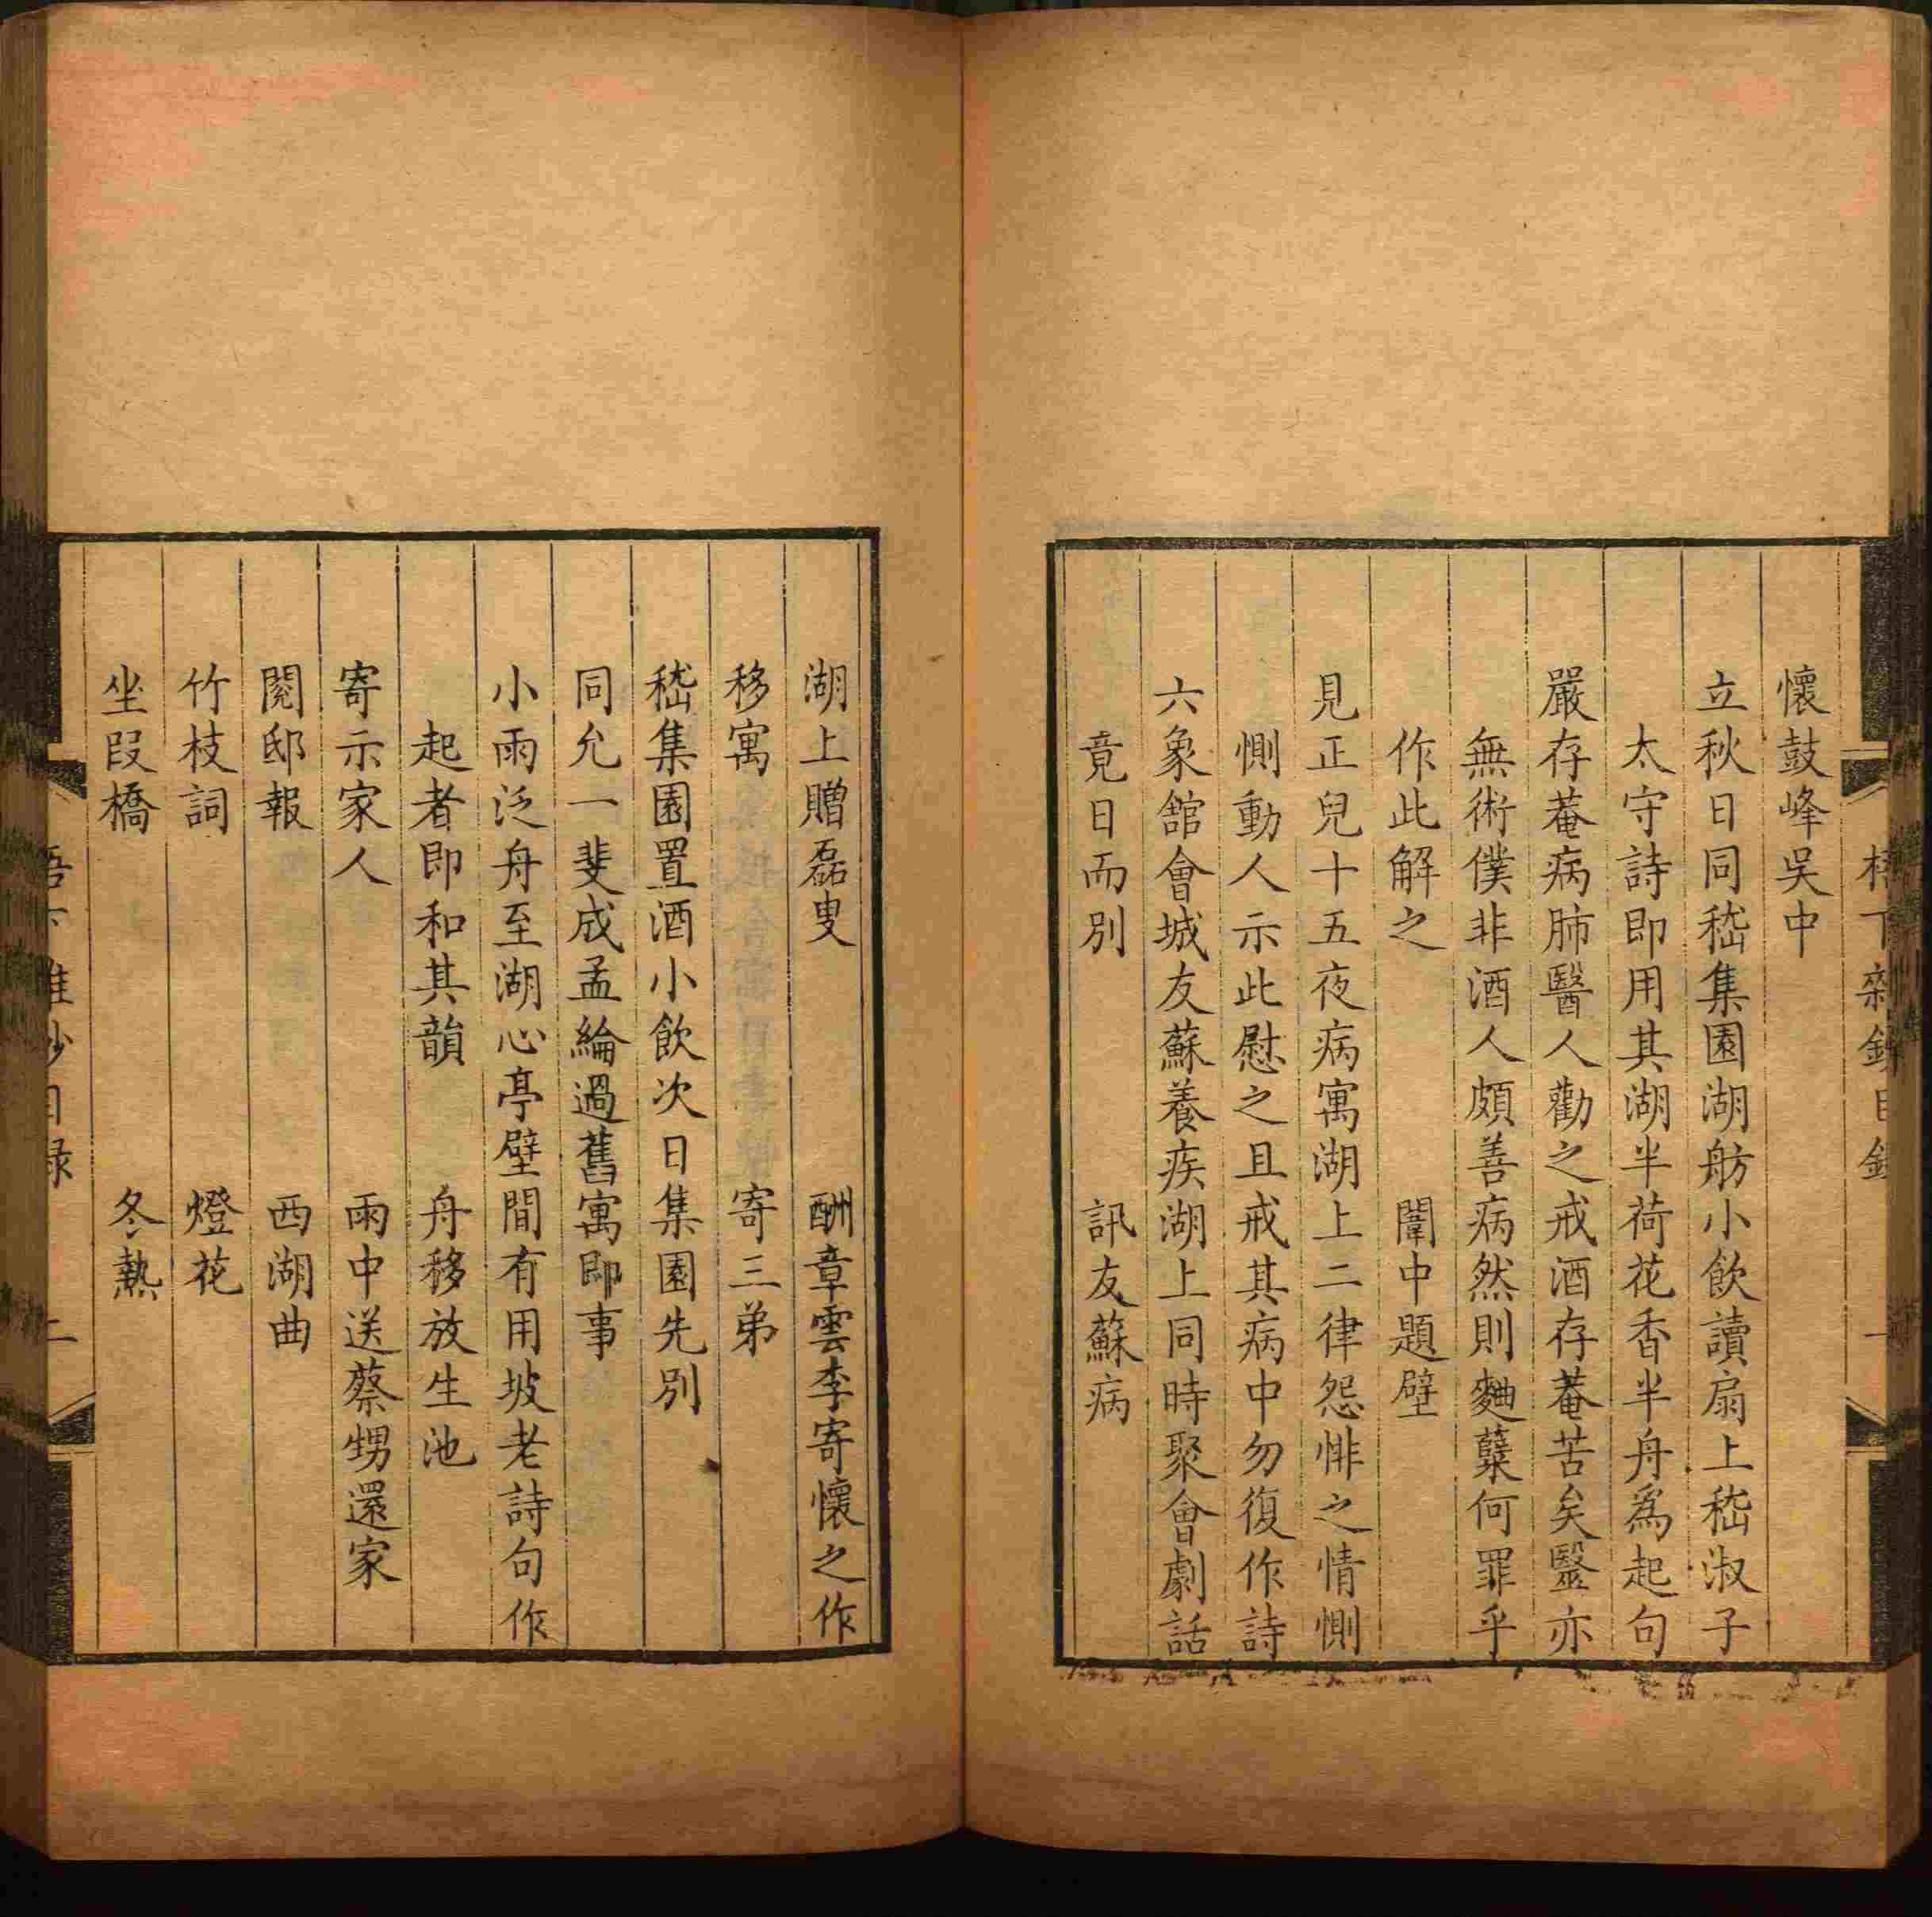 懷鼓峰吳中
立秋日同嵇集園湖舫小飲讀扇上嵇淑子
太守詩即用其湖半荷花香半舟爲起句
嚴存菴病肺醫人勸之戒酒存菴苦矣醫亦
無術僕非酒人頗善病然則麯櫱何罪乎
作此解之 闈中題壁
見正兒十五夜病寓湖上二律怨悱之情惻
惻動人示此慰之且戒其病中勿復作詩
六象舘會城友蘇養疾湖上同時聚會劇話
竟日而別 訊友蘇病
湖上贈磊叟 酬章雲李寄懷之作
移寓 寄三弟
嵇集園置酒小飲次日集園先別
同允一斐成孟綸過舊寓即事
小雨泛舟至湖心亭壁間有用坡老詩句作
起者即和其韻 舟移放生池
寄示家人 雨中送蔡甥還家
閱邸報 西湖曲
竹枝詞 燈花
坐段橋 冬熱
二